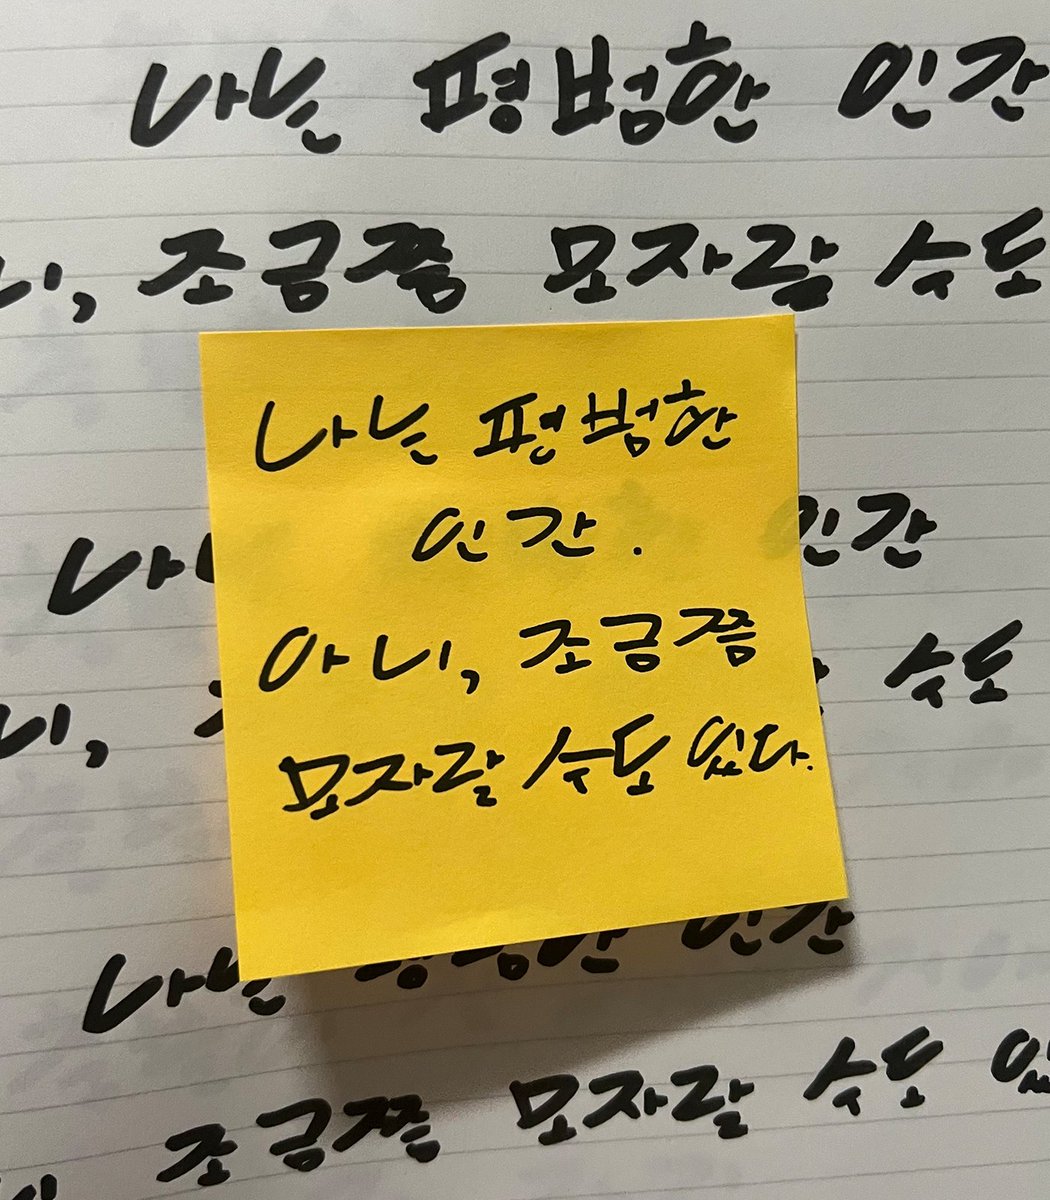 나는 평범한 인간
니, 조금쯤 모자랄 수도
나는 평범한
인간.
아니, 조금쯤
모자랄 수도 있다.
인간
니,
수도
나는 평범한 인간
조금쯤 모자랄 수도 있